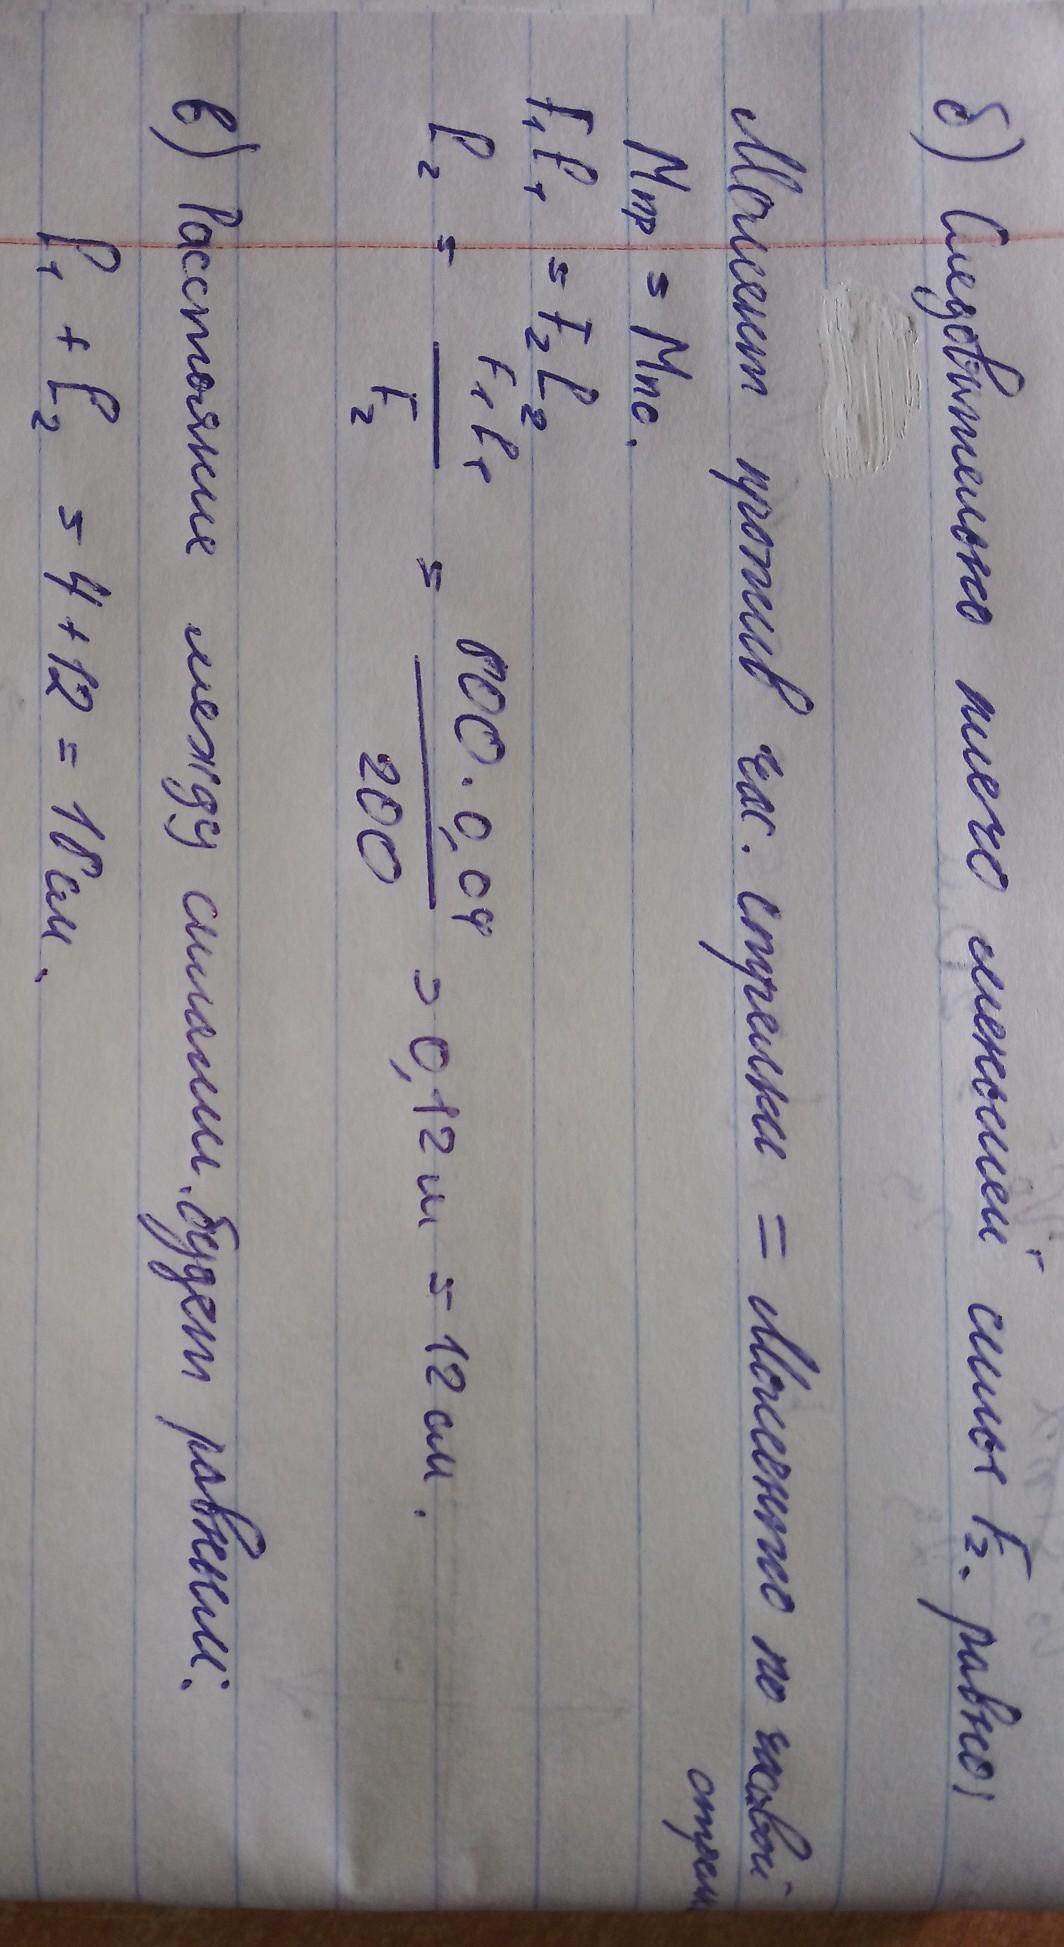 б) Следовательно плечо меньшей силы F₂. равно;
Момент против час. стрелки = Моменто по часовой
стрелк
Mпр = Mпо.
F₁l₁ = F₂l₂
l₂ = F₁l₁ / F₂ = 800 · 0,04 / 200 = 0,12 м = 12 см.
в) Расстояние между силами. будет равным:
l₁ + l₂ = 4 + 12 = 18 см.